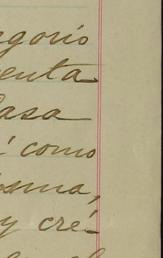 egorio
enta
asa
í como
isma,
y cré-